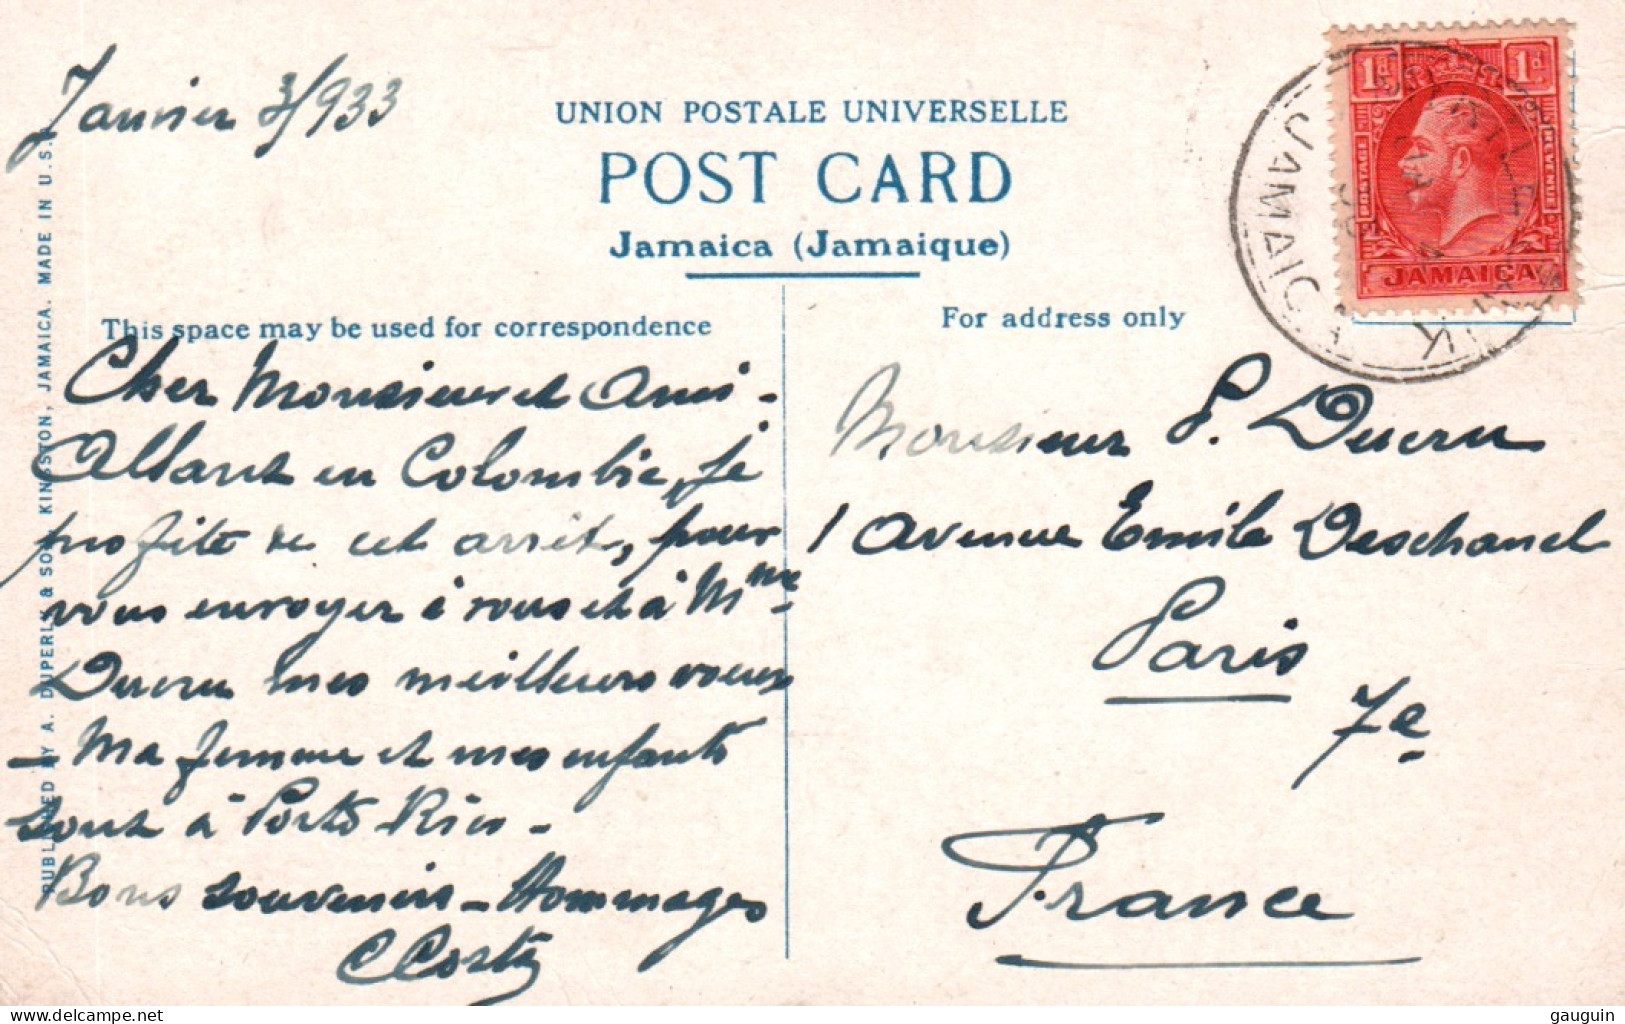 Janvier 3/933
UNION POSTALE UNIVERSELLE
POST CARD
Jamaica (Jamaique)
This space may be used for correspondence
For address only
PUBLISHED BY A. DUPERLY & SON, KINGSTON, JAMAICA. MADE IN U.S.
Cher Monsieur et Ami -
Allant en Colombie, je
profite de cet arrêt, pour
vous envoyer à vous et à Mme
Ducru mes meilleurs voeux
- Ma femme et mes enfants
sont à Porto Rico -
Bons souvenirs - Hommages
C Costa
1d 1d
POSTAGE & REVENUE
JAMAICA
JAMAICA
Monsieur P. Ducru
1 Avenue Emile Deschanel
Paris
7e
France
delcampe.net
gauguin